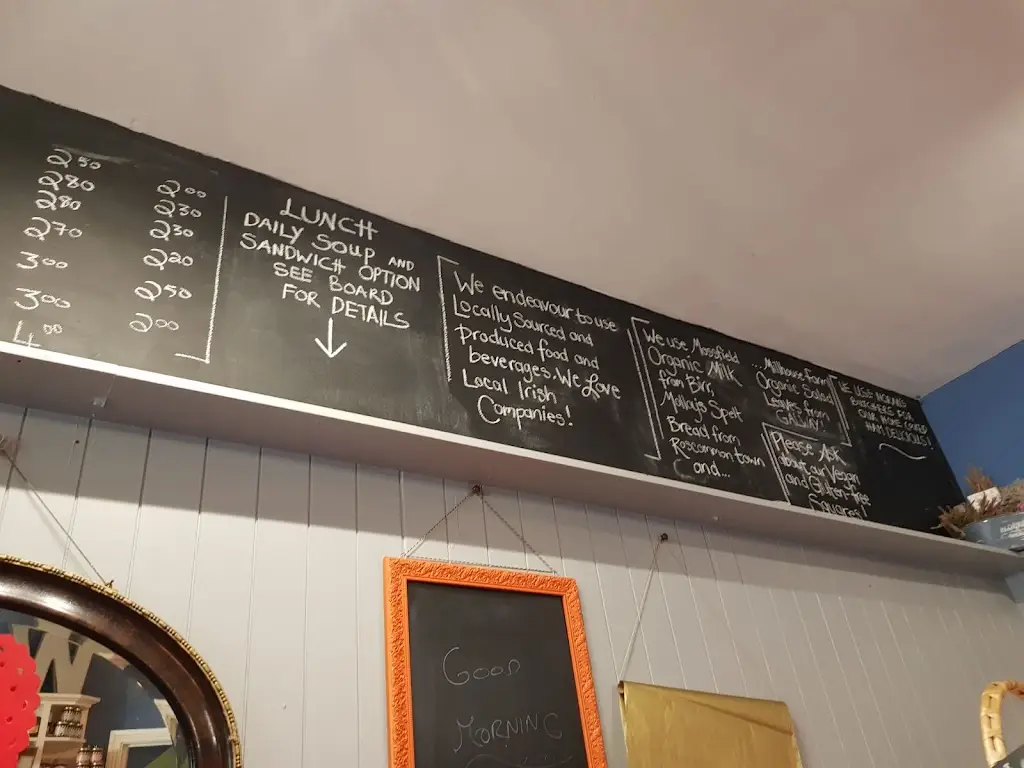 2.50
2.80
2.80
2.70
3.00
3.00
4.00
2.00
2.30
2.30
2.20
2.50
2.00
LUNCH
DAILY SOUP AND
SANDWICH OPTION
SEE BOARD
FOR DETAILS
We endeavour to use
Locally Sourced and
produced food and
beverages. We Love
Local Irish
Companies!
We use, Mossfield
Organic Milk
from Birr,
Molloy's Spelt
Bread from
Roscommon town
and...
...Millhouse Farm
Organic Salad
Leaves from
Galway!
Please Ask
about our Vegan
and Gluten-Free
WE USE
FOR
GOOD
MORNING